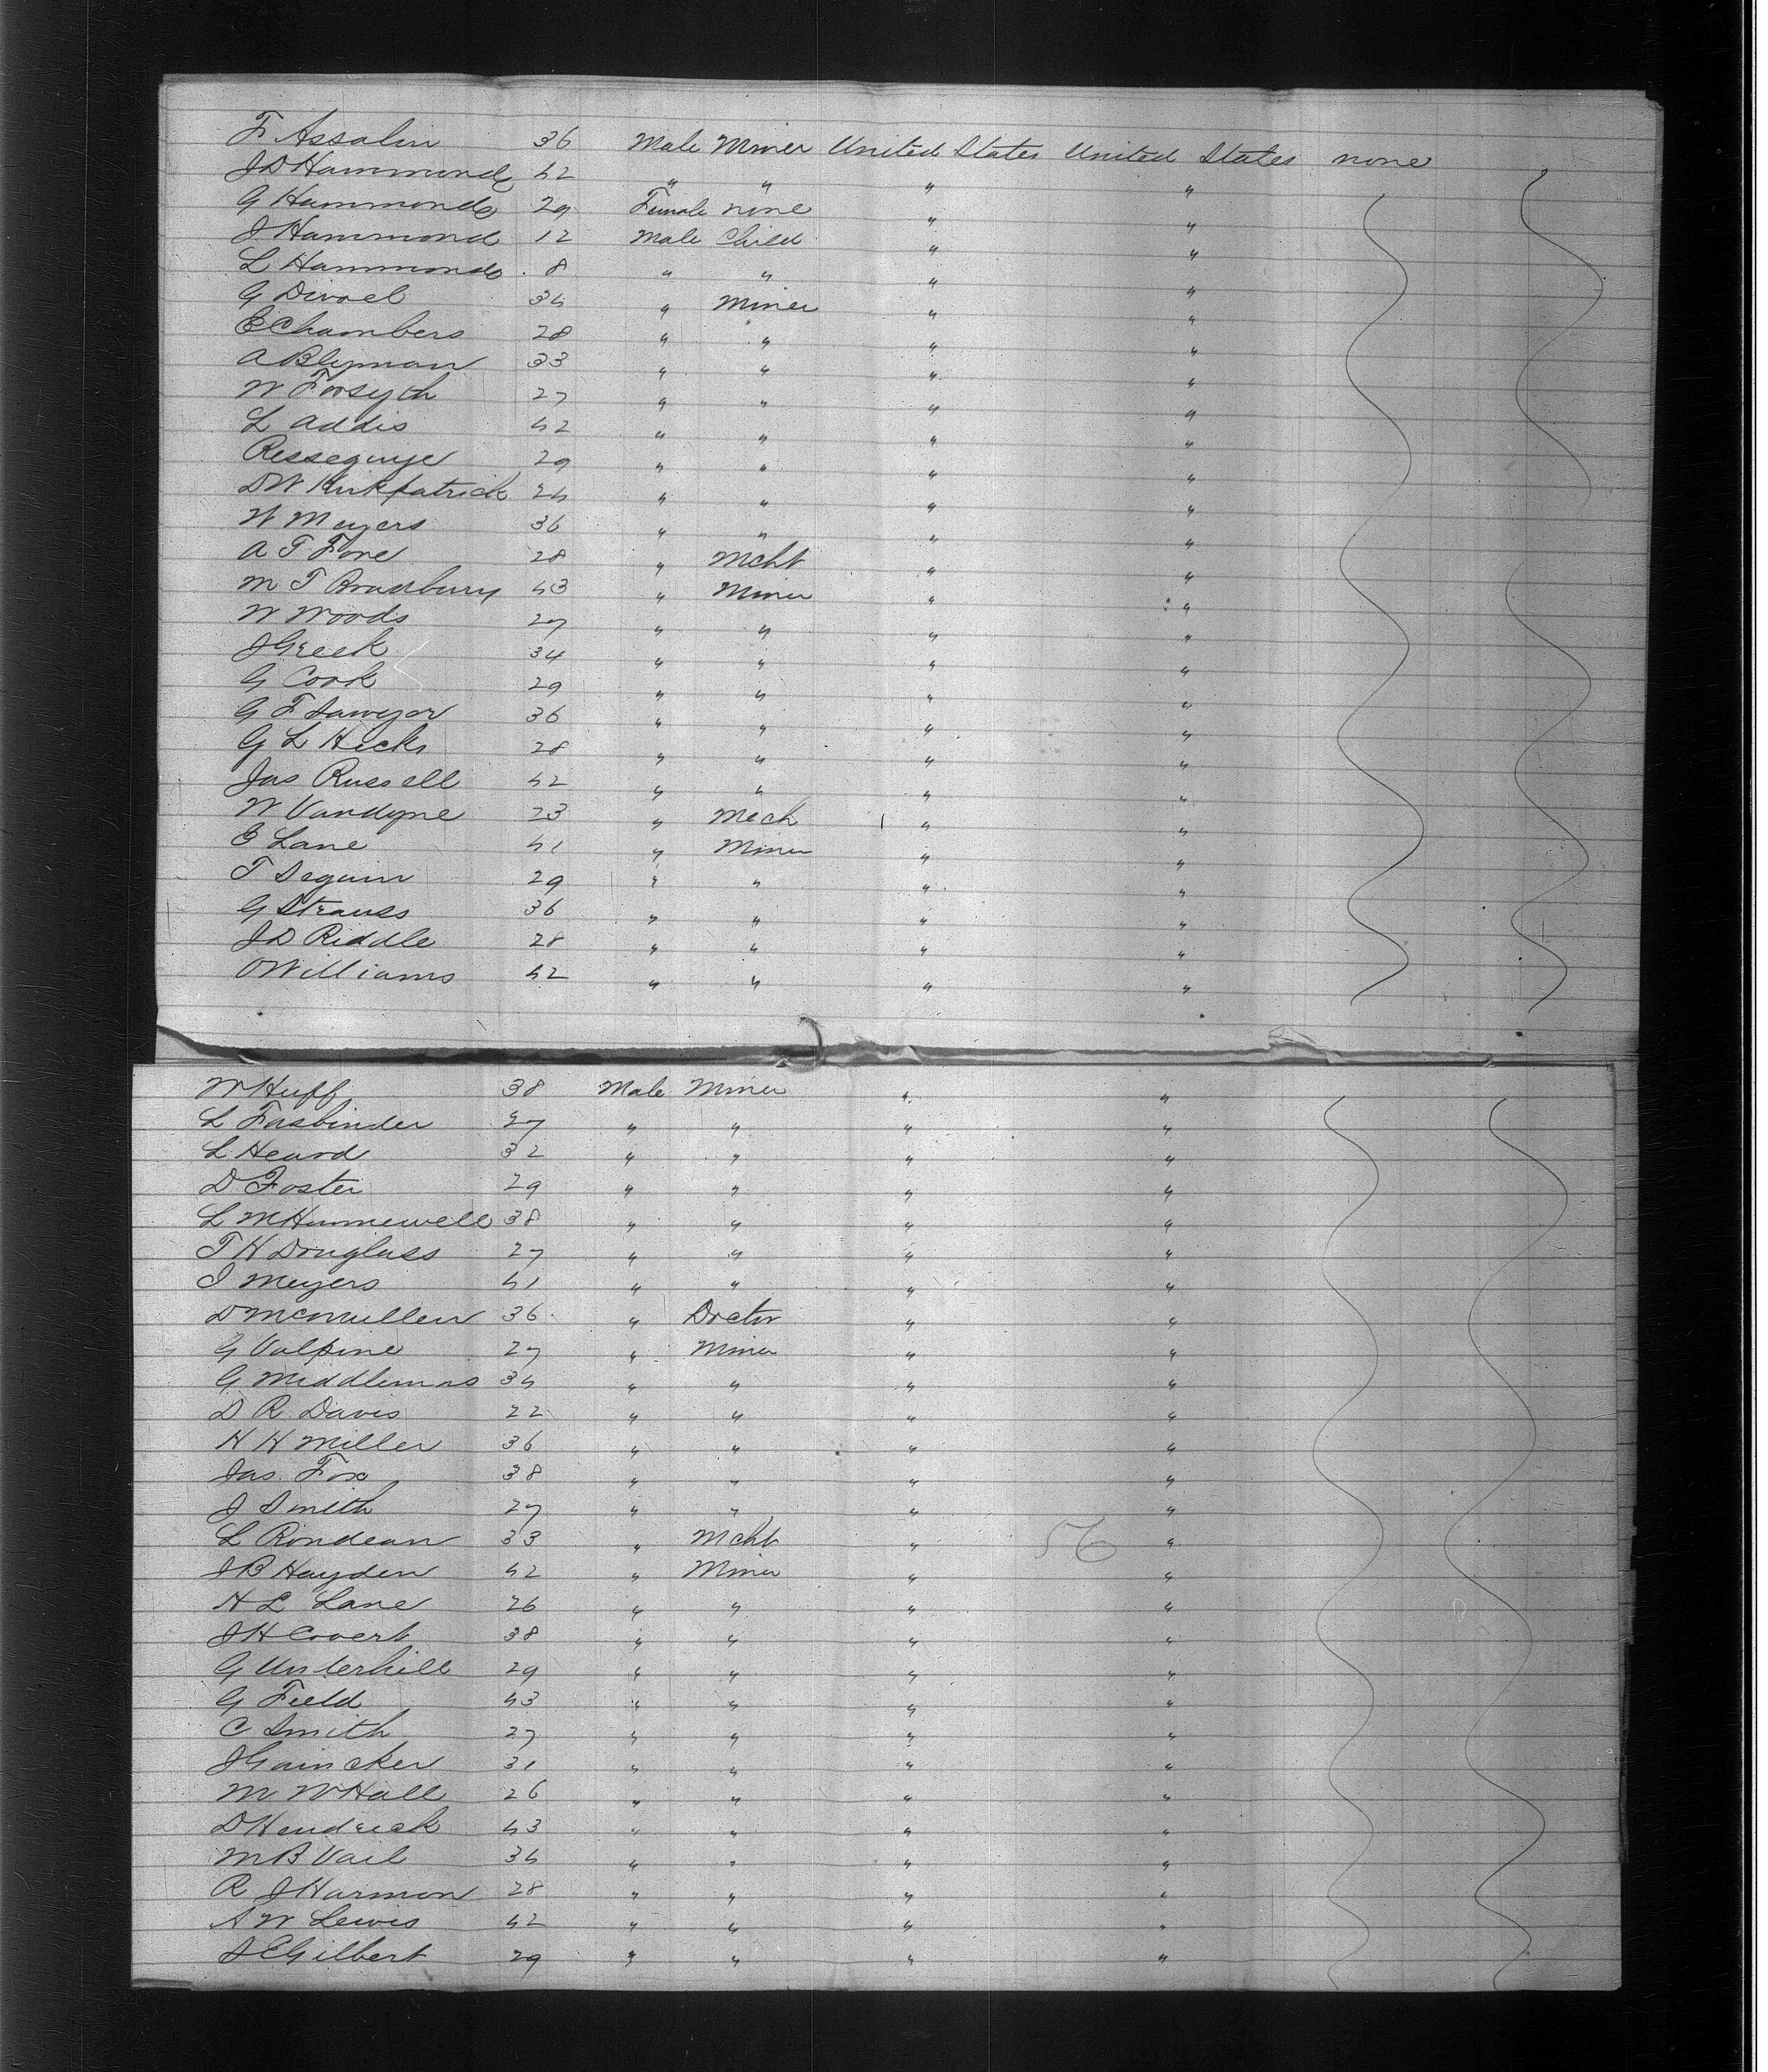 F Assalin 36 Male Miner United States United States none
J D Hammond 42 " " " "
G Hammond 29 Female none " "
J Hammond 12 Male Child " "
L Hammond 8 " " " "
G Divoel 34 " Miner " "
E Chambers 28 " " " "
A Blyman 33 " " " "
W Forsyth 27 " " " "
L Addis 42 " " " "
Resseguye 29 " " " "
D W Kirkpatrick 24 " " " "
W Meyers 36 " " " "
A T Fore 28 " Mcht " "
M T Bradbury 43 " Miner " "
W Woods 27 " " " "
J Greek 34 " " " "
G Cook 29 " " " "
G F Sawyer 36 " " " "
G L Hicks 28 " " " "
Jas Russell 42 " " " "
W Vandyne 23 " Mech " "
E Lane 41 " Miner " "
T Seguin 29 " " " "
G Strauss 36 " " " "
J D Riddle 28 " " " "
O Williams 42 " " " "
W Huff 38 Male Miner " "
L Fasbinder 27 " " " "
L Heard 32 " " " "
D Foster 29 " " " "
L M Hunnewell 38 " " " "
T H Douglass 27 " " " "
I Meyers 41 " " " "
D McMullen 36 " Doctor " "
G Valpine 27 " Miner " "
G Middlemas 34 " " " "
D R Davis 22 " " " "
H H Miller 36 " " " "
Jas. Fox 38 " " " "
J Smith 27 " " " "
L Rondeau 33 " Mcht " 56 "
J B Hayden 42 " Miner " "
H L Lane 26 " " " "
J H Covert 38 " " " "
G Underhill 29 " " " "
G Field 43 " " " "
C Smith 27 " " " "
J Gaincker 31 " " " "
M W Hall 26 " " " "
D Hendrick 43 " " " "
M B Vail 34 " " " "
R J Harmon 28 " " " "
A W Lewis 42 " " " "
J E Gilbert 29 " " " "